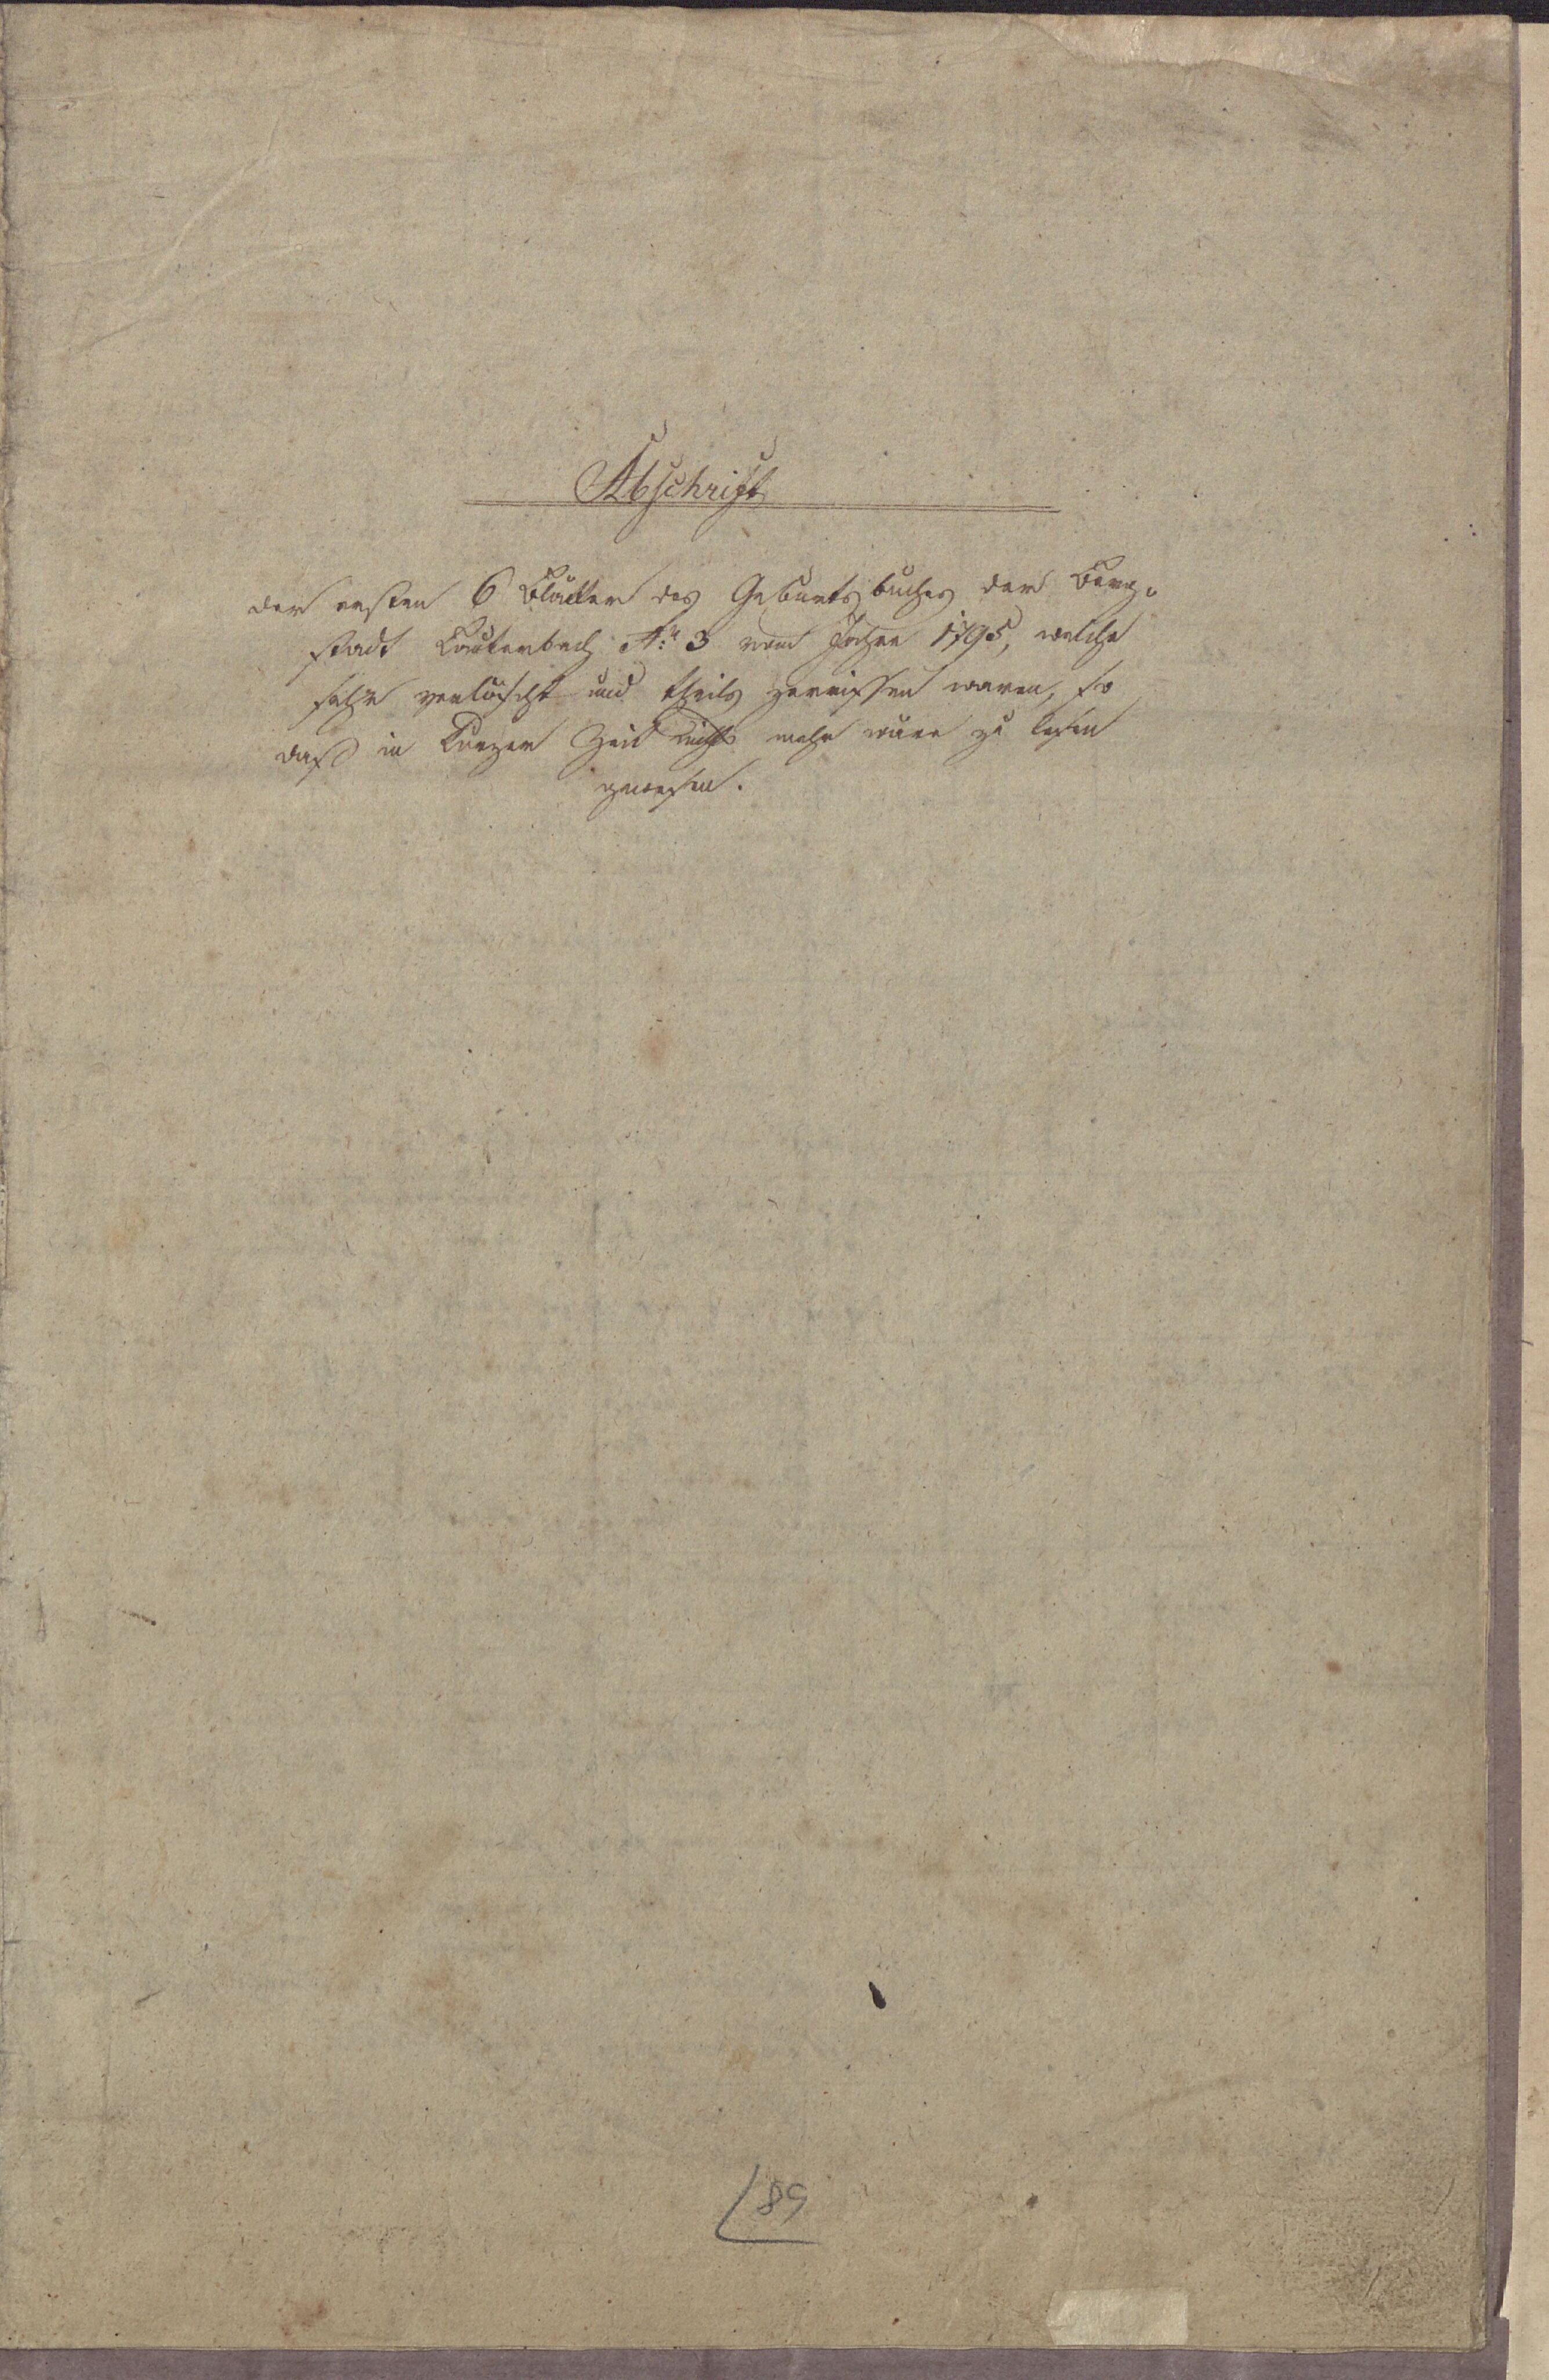 Abschrift
der ersten 6 Blätter des Geburtsbuches der Berg-
stadt Lauterbach No 3 vom Jahre 1795, welche
sehr verlöscht und theils zerrissen waren, so
daß in kurzer Zeit nichts mehr wäre zu lesen
gewesen.
89